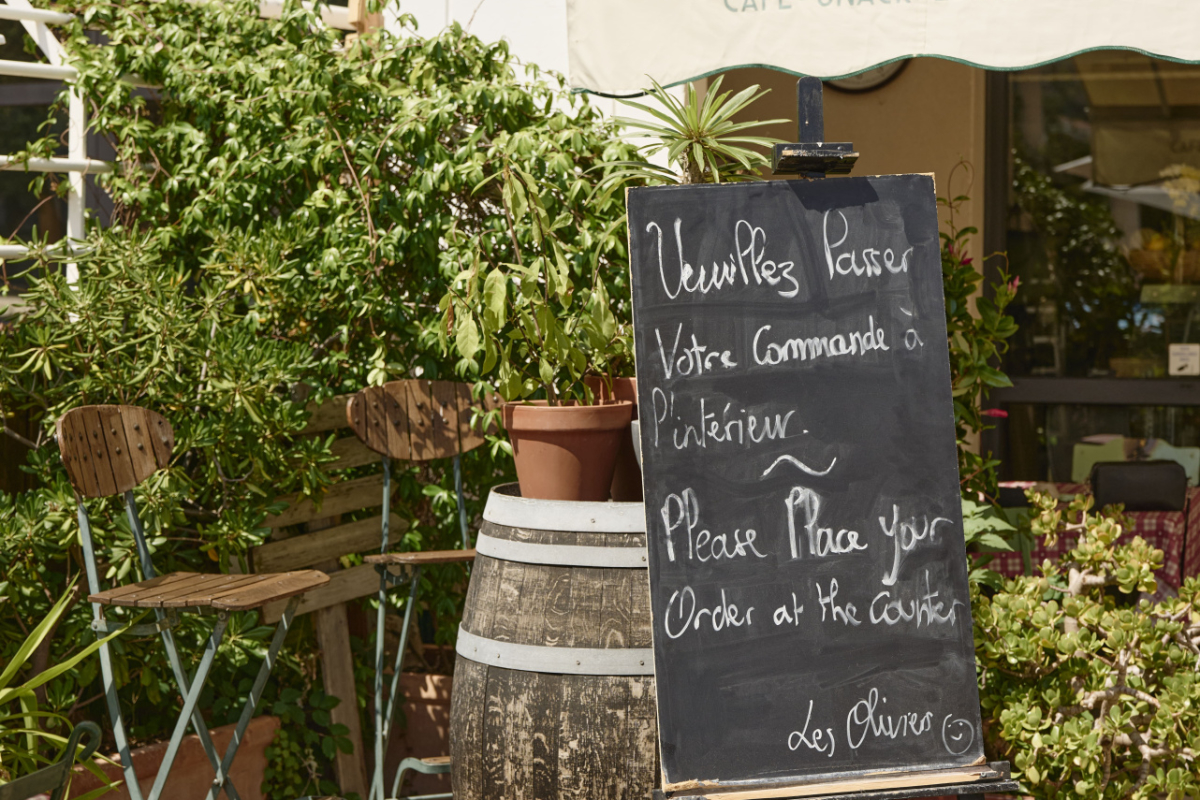 CAFE SNACK
Veuillez Passer
Votre Commande à
l'intérieur.
~
Please Place your
Order at the counter
Les Oliviers ☺